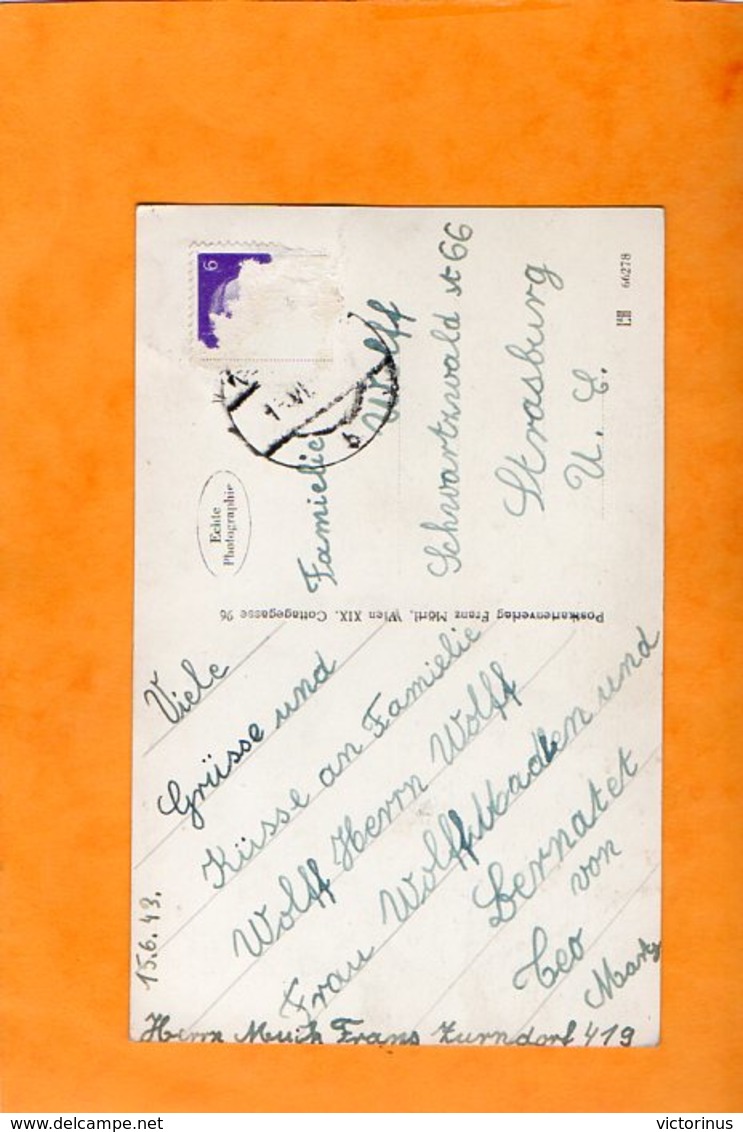 6
Echte
Photographie
Familie
Wolff
Schwartzwald st 66
Strasburg
66278
Postkartenverlag Franz Mörtl, Wien XIX. Cottagegasse 96
Viele
Grüsse und
Küsse an Familie
Wolff Herrn Wolff
Frau Wolff und
Bernatet
von
15.6.43.
Herrn Frans Zurndorf 419
www.delcampe.net
victorinus